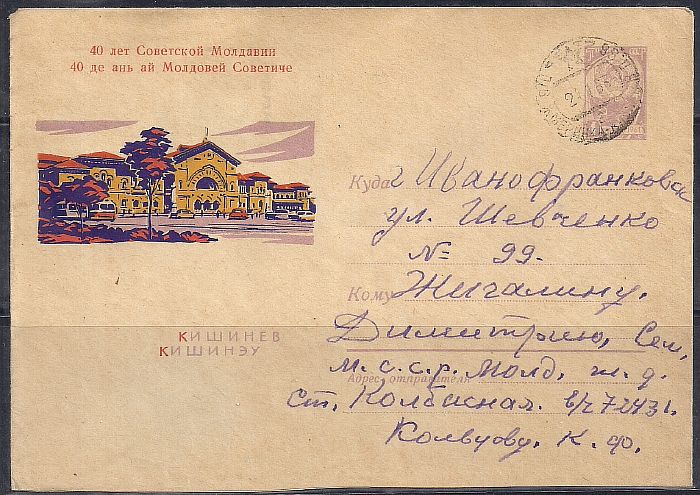 40 лет Советской Молдавии
40 де ань ай Молдовей Советиче
Куда г Ивано франковск
ул. Шевченко
№ 99.
Кому Жигалину.
Димитрию, Сем,
м. с. с. р. Молд, ж. д.
Адрес отправителя
Ст. Колбасная. в/ч
К. Ф.
КИШИНЕВ
КИШИНЭУ